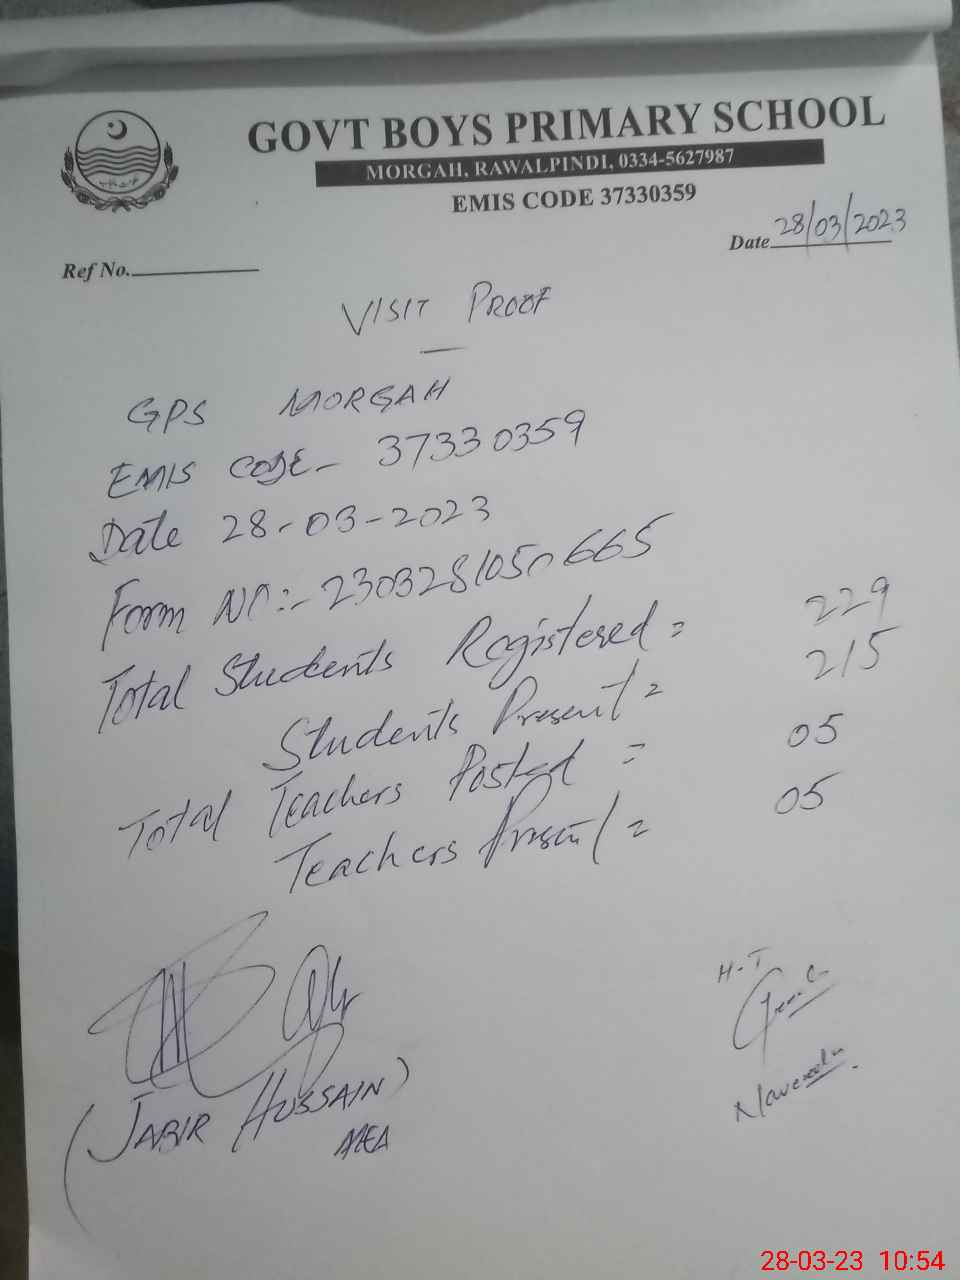 GOVT BOYS PRIMARY SCHOOL
MORGAH, RAWALPINDI, 0334-5627987
EMIS CODE 37330359
Date 28/03/2023
Ref No.
VISIT PROOF
GPS MORGAH
EMIS CODE- 37330359
Date 28-03-2023
Form NO:- 2303281050665
Total Students Registered = 229
Students Present = 215
Total Teachers Posted = 05
Teachers Present = 05
H-T
(JABIR HUSSAIN)
AEA
28-03-23 10:54